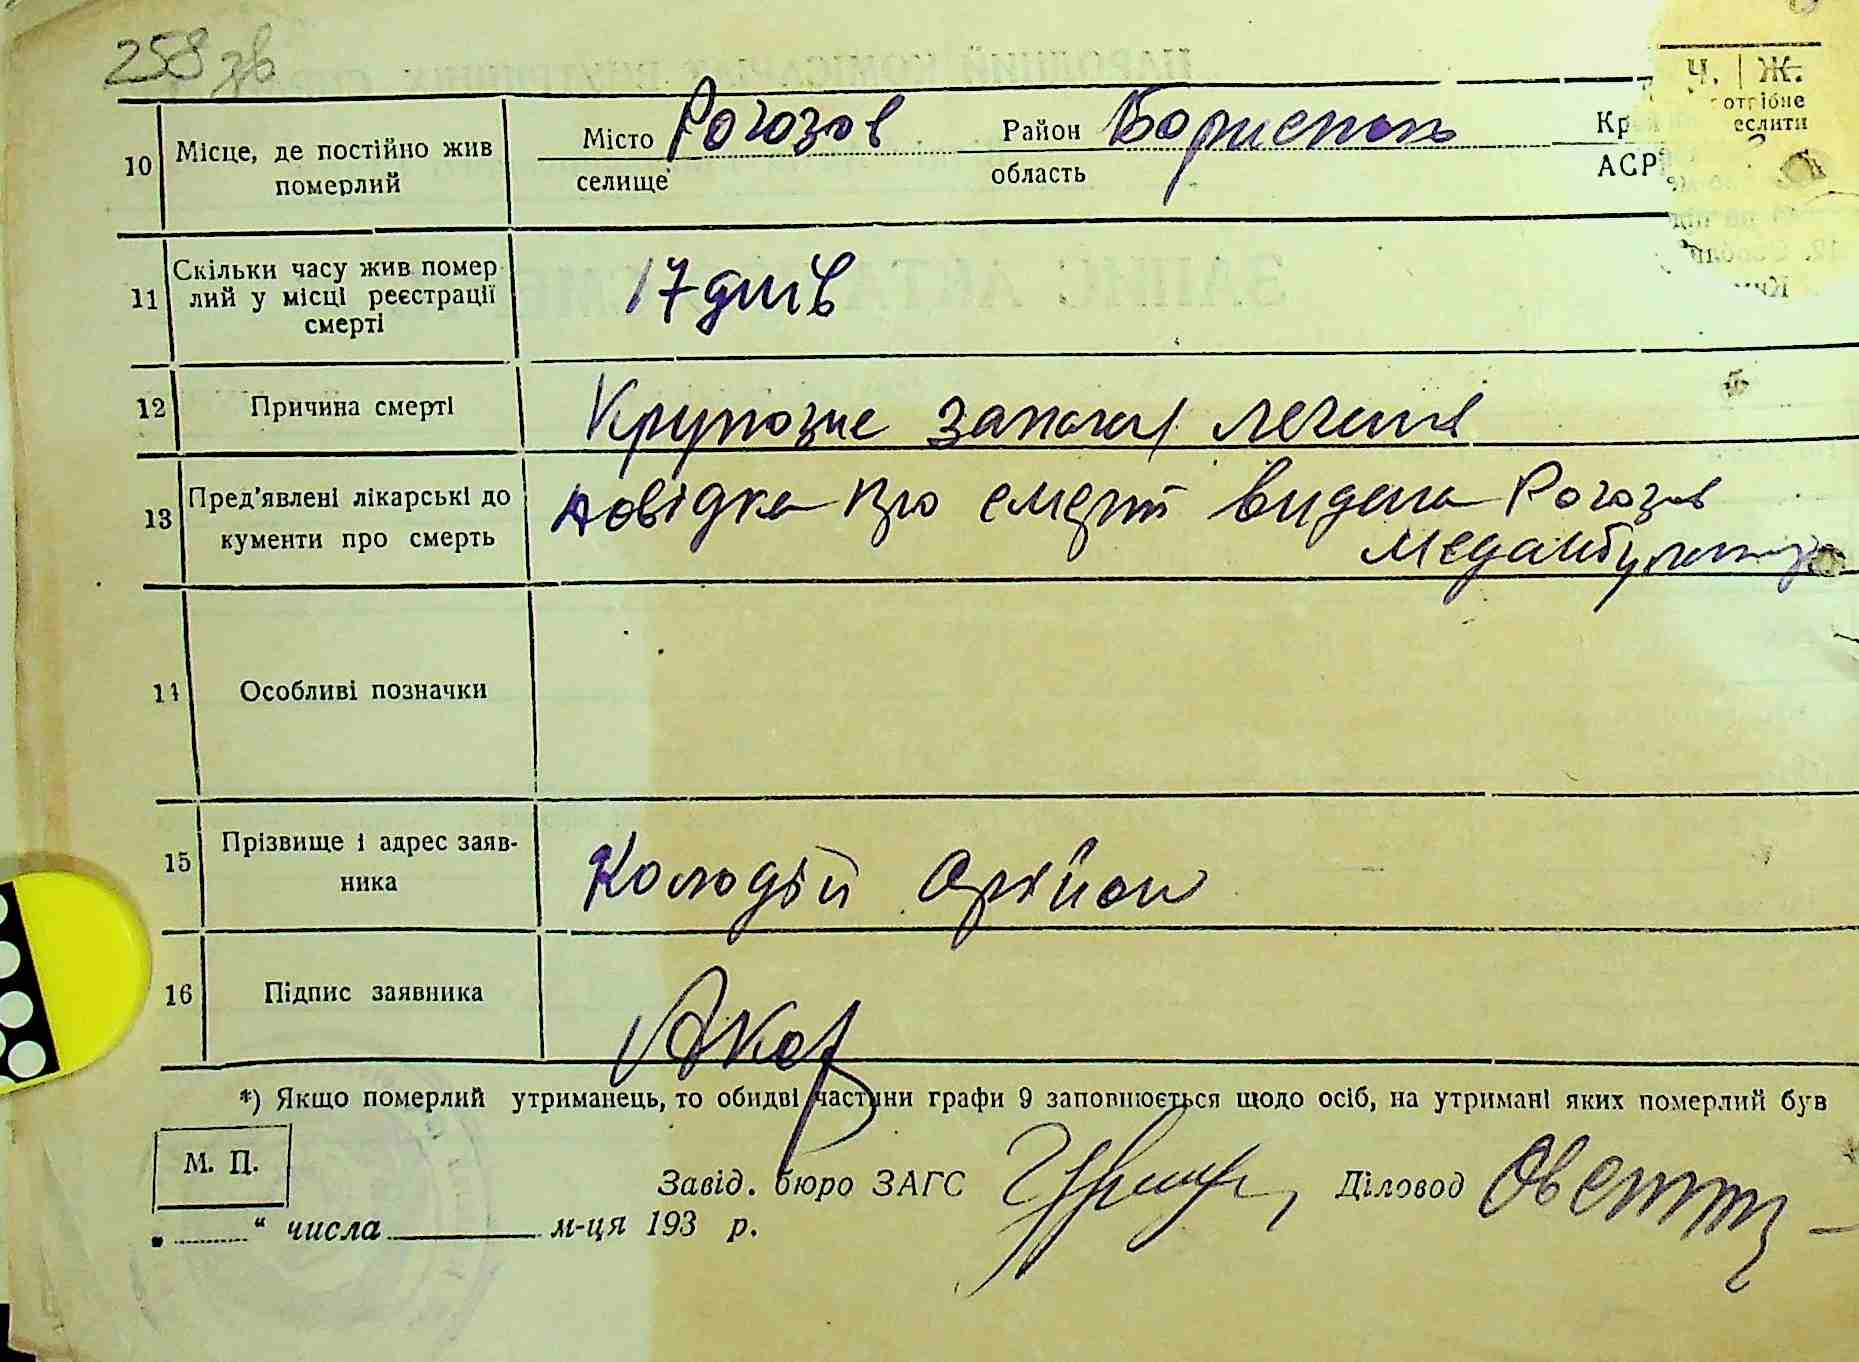 258 зв
Ч. | Ж.
10 Місце, де постійно жив померлий Місто Рогозов Район Бориспол Кр
селище область АСР
11 Скільки часу жив помер
лий у місці реєстрації
смерті
17 днів
12 Причина смерті Крупозне запал легень
13 Пред'явлені лікарські до
кументи про смерть
Довідка про смерть видана Рогозов
Медамбулатор
14 Особливі позначки
15 Прізвище і адрес заяв-
ника
Колодій
16 Підпис заявника
*) Якщо померлий утриманець, то обидві частини графи 9 заповнюється щодо осіб, на утримані яких померлий був
М. П. Завід. бюро ЗАГС Діловод
„ “ числа м-ця 193 р.